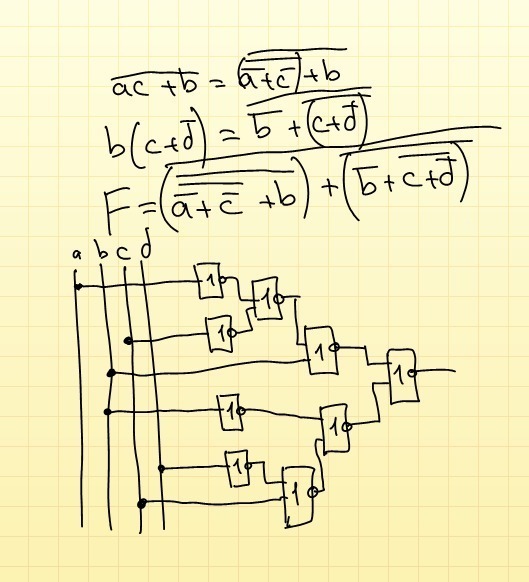 a̅c̅ ̅+̅ ̅b̅ = \overline{(\overline{\overline{a}+\overline{c}})+b}
b(c+\overline{d}) = \overline{\overline{b}+\overline{(c+\overline{d})}}
F = \overline{(\overline{\overline{\overline{a}+\overline{c}}+b})+(\overline{\overline{b}+\overline{c+\overline{d}}})}
a b c d
1
1
1
1
1
1
1
1
1
1